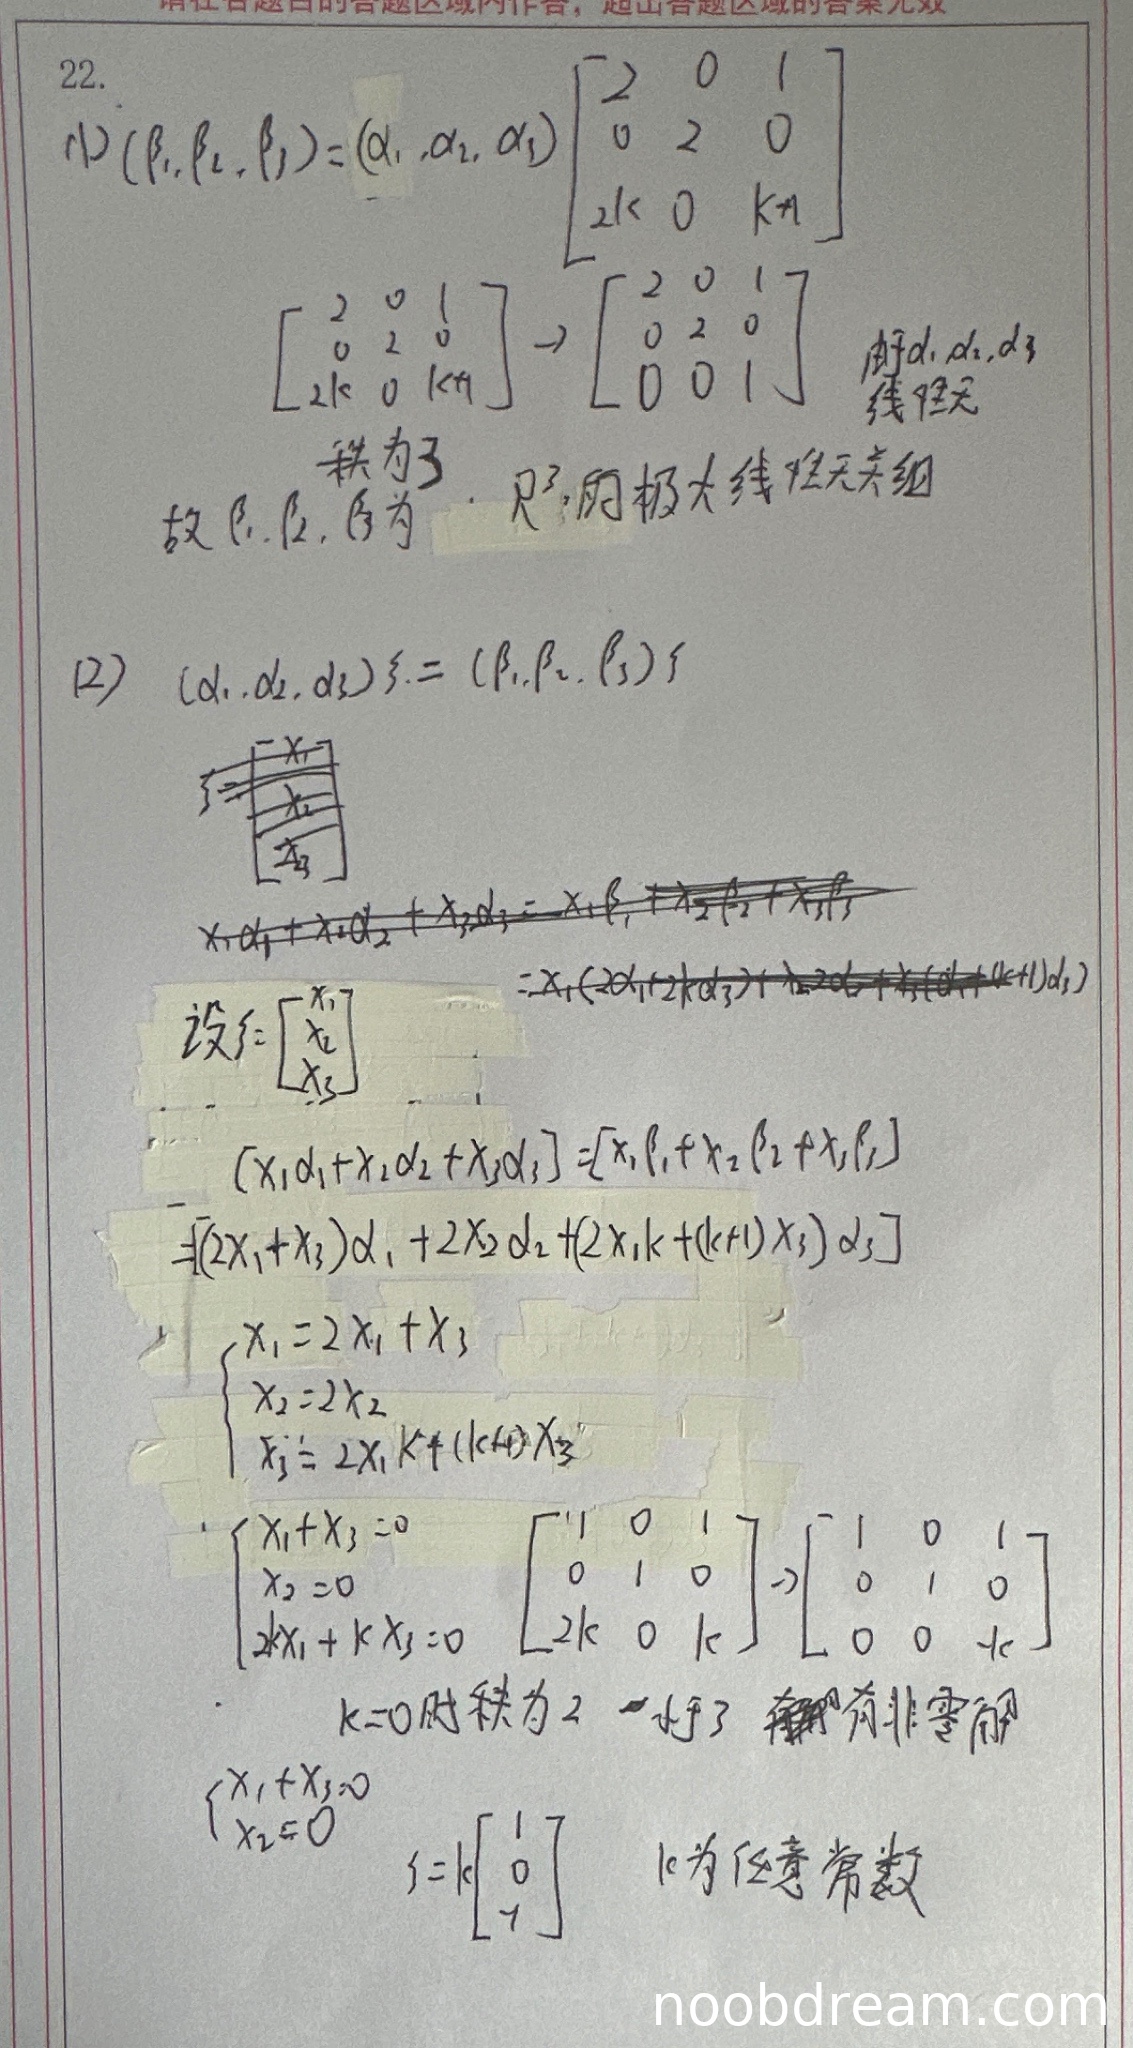 请在各题目的答题区域内作答，超出答题区域的答案无效
22.
(1) (β₁, β₂, β₃) = (α₁, α₂, α₃) [2 0 1
0 2 0
2k 0 k+1]
[2 0 1
0 2 0
2k 0 k+1] → [2 0 1
0 2 0
0 0 1]
由于α₁,α₂,α₃
线性无
秩为3
故β₁,β₂,β₃为 R³的极大线性无关组
(2) (α₁,α₂,α₃)ξ = (β₁,β₂,β₃)ξ
ξ= [x₁
x₂
x₃]
x₁α₁+x₂α₂+x₃α₃ = x₁β₁+x₂β₂+x₃β₃
=x₁(2α₁+2kα₃)+x₂2α₂+x₃(α₁+(k+1)α₃)
设ξ= [x₁
x₂
x₃]
[x₁α₁+x₂α₂+x₃α₃] = [x₁β₁+x₂β₂+x₃β₃]
=[(2x₁+x₃)α₁+2x₂α₂+(2x₁k+(k+1)x₃)α₃]
{x₁=2x₁+x₃
x₂=2x₂
x₃=2x₁k+(k+1)x₃
{x₁+x₃=0
x₂=0
2kx₁+kx₃=0
[1 0 1
0 1 0
2k 0 k] → [1 0 1
0 1 0
0 0 -k]
k=0时秩为2 小于3 有非零解
{x₁+x₃=0
x₂=0
ξ=k[1
0
-1] k为任意常数
noobdream.com